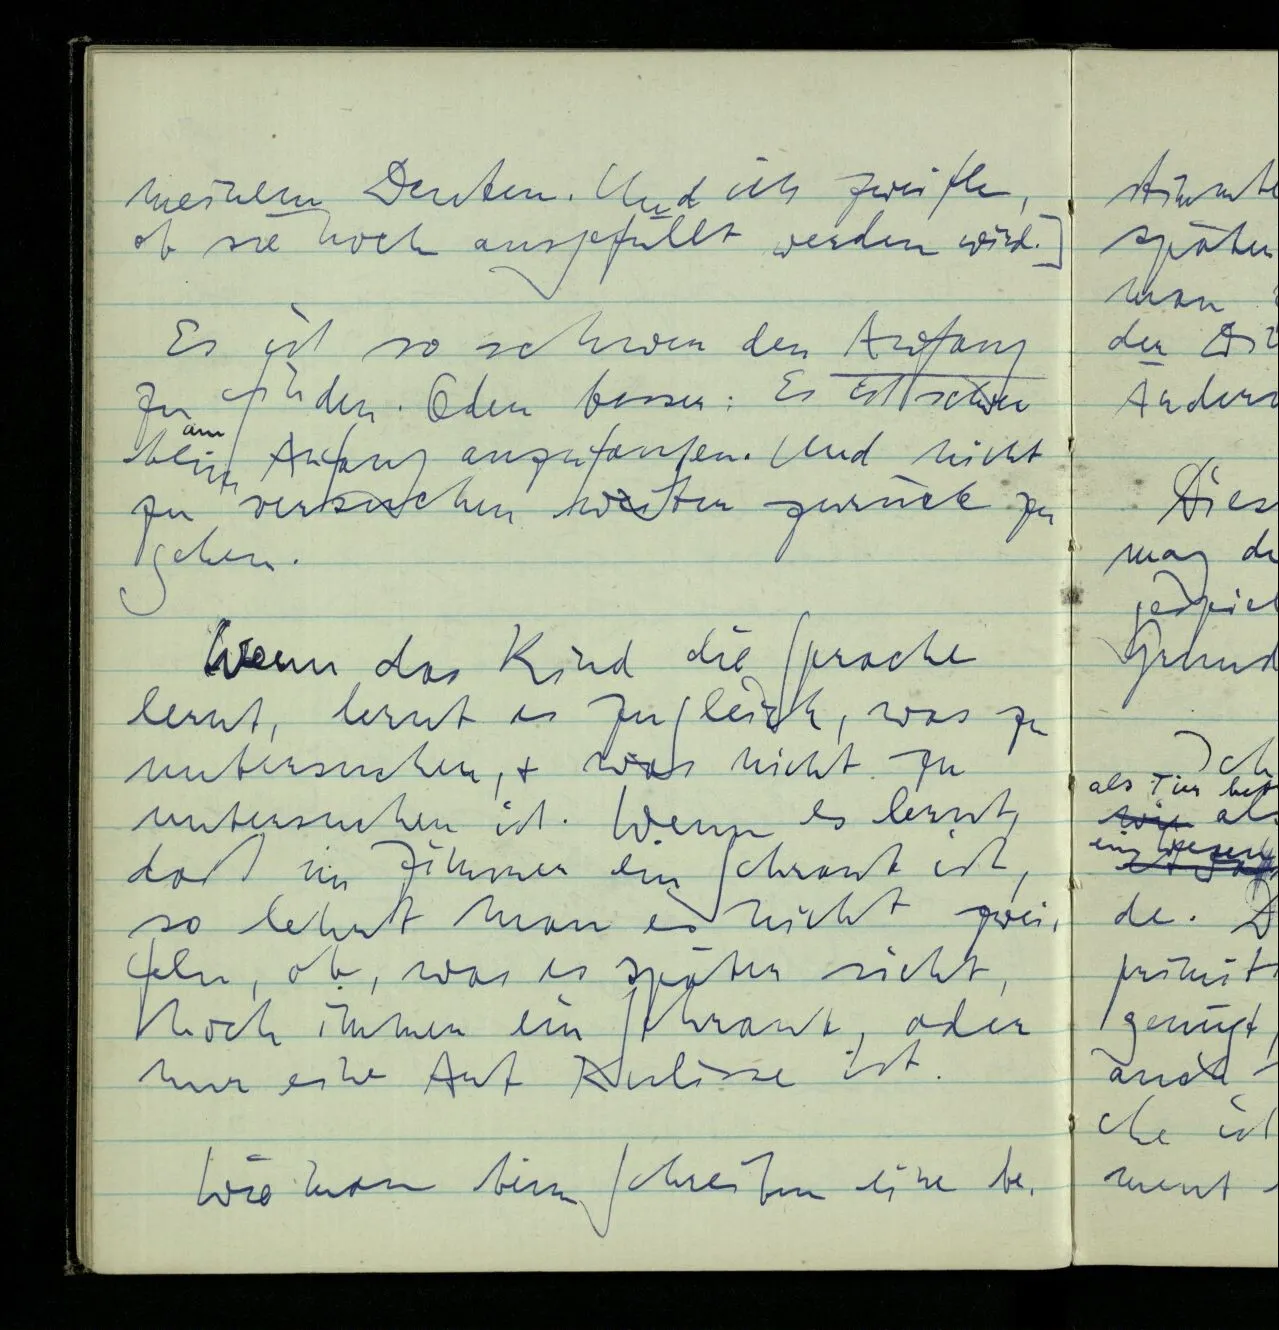 meinem Denken. Und ich zweifle,
ob sie noch ausgefüllt werden wird.]
Es ist so schwer den Anfang
zu finden. Oder besser: Es ist schwer
am
Anfang anzufangen. Und nicht
zu versuchen weiter zurück zu
gehen.
Wenn das Kind die Sprache
lernt, lernt es zugleich, was zu
untersuchen, + was nicht zu
untersuchen ist. Wenn es lernt,
daß im Zimmer ein Schrank ist,
so lehrt man es nicht zwei-
feln, ob, was es später sieht,
noch immer ein Schrank, oder
nur eine Art Kulisse ist.
Wie man beim Schreiben eine be-
stimmte
später
man
der
Änder
Dies
mag
Grund
Ich
als Tier
wie als
ein Wesen
de. D
primit
genügt,
auch
che ist
ment